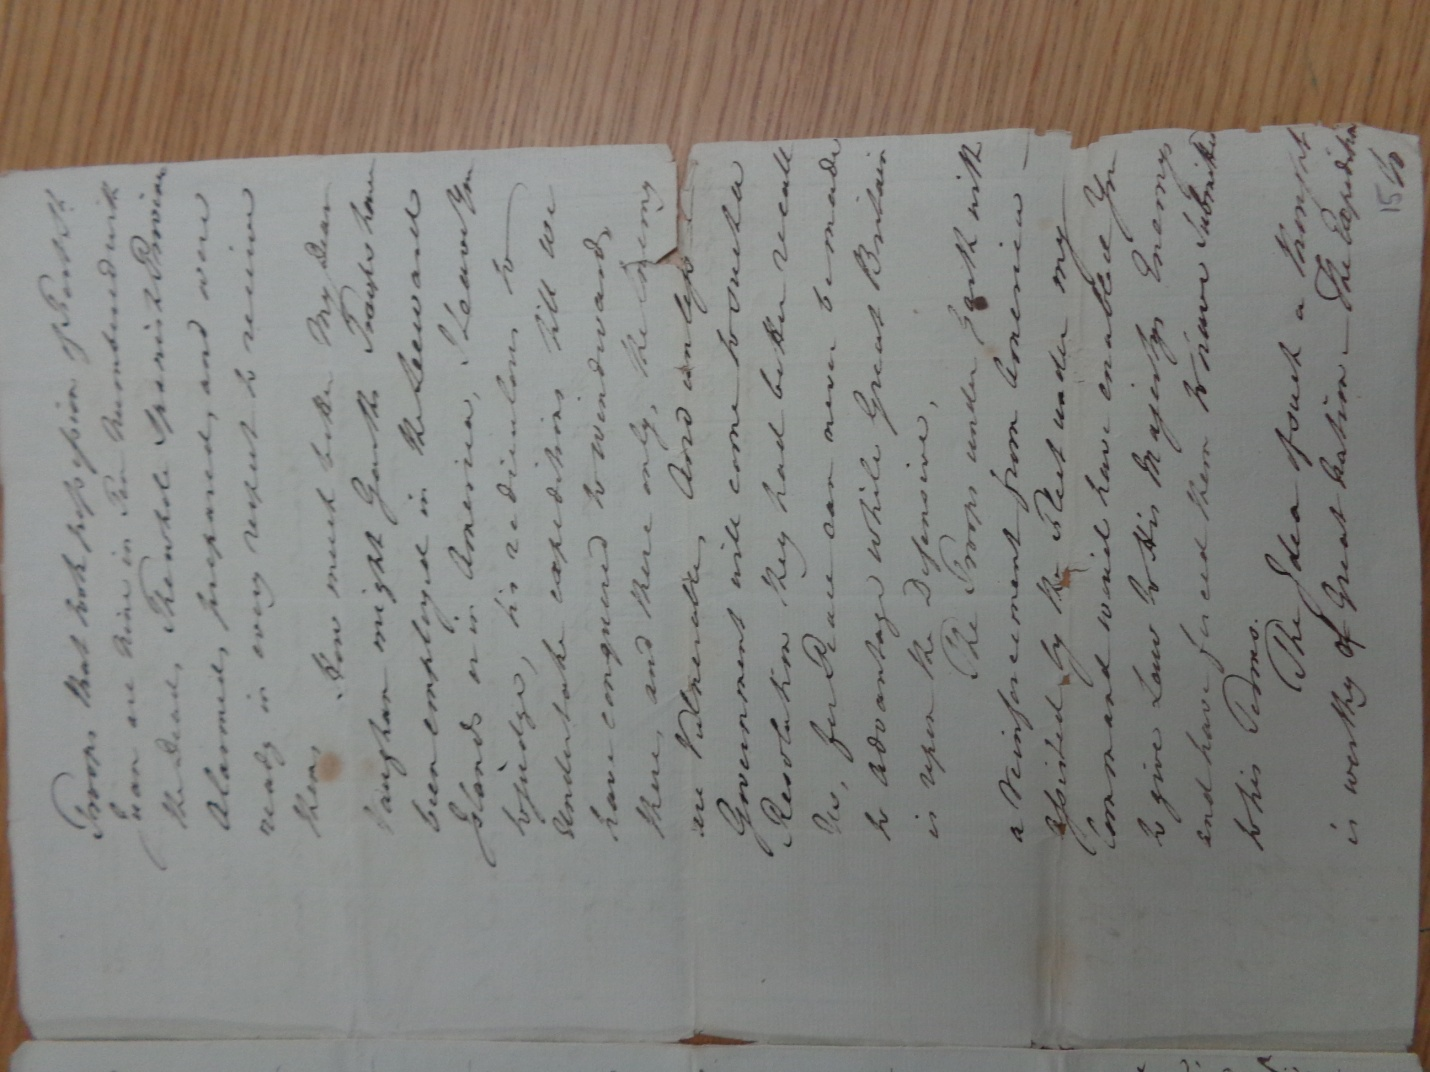 Troops that took possession of Portobello
Juan are nine in Ten numbered with
the dead, The whole Spanish Provinces
Alarmed, prepared, and were
ready in every respect to receive
them
How much better My Dear
Vaughan might Gen. the Troops have
been employed in the Leeward
Islands or in America, I Leave You
to Judge, tis rediculous to
Undertake expeditions till we
have conquered to windward,
there, and there only, the Enemy
are Vulnerable, And unless
Government will come to a
Resolution they had better recall
Us, for Peace can never be made
to advantage while Great Britain
is upon the Defensive,
The Troops under Garth with
a reinforcement from America
assisted by the Fleet under my
Command would have enabled You
to give Law to His Majestys Enemys
and have forced them to have Submitted
to his Terms.
The Idea of such a thought
is worthy of Great Nation The Expedition
15/6